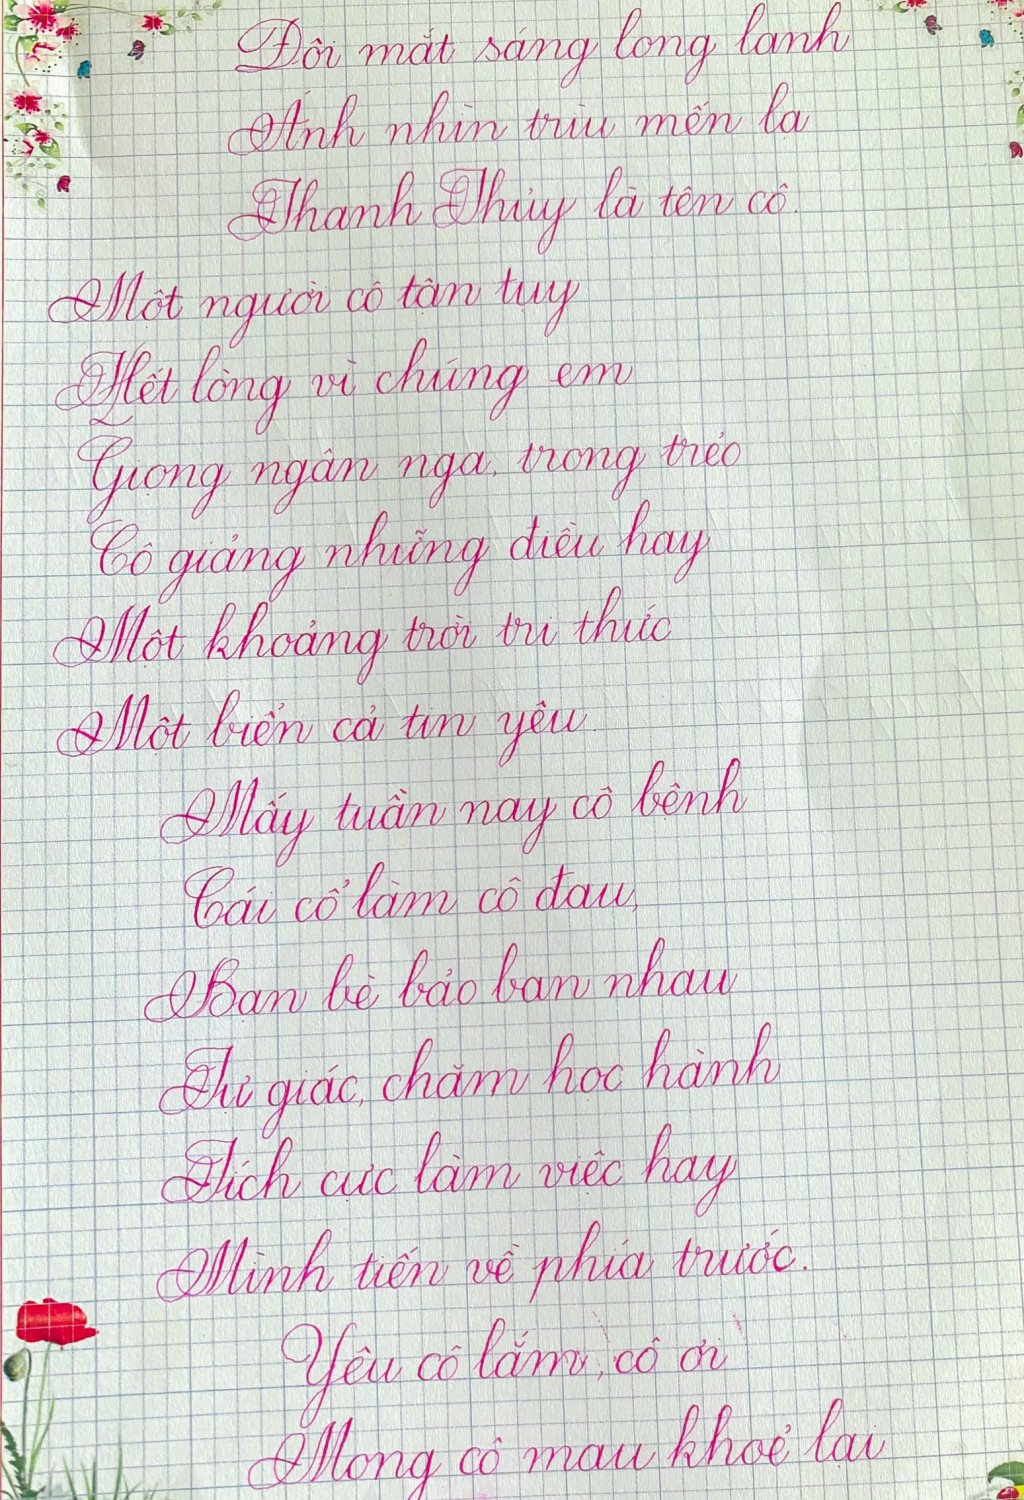 Đôi mắt sáng long lanh
Ánh nhìn trìu mến lạ
Thanh Thủy là tên cô.
Một người cô tận tụy
Hết lòng vì chúng em
Giọng ngân nga, trong trẻo
Cô giảng những điều hay
Một khoảng trời tri thức
Một biển cả tin yêu.
Mấy tuần nay cô bệnh
Cái cổ làm cô đau,
Bạn bè bảo ban nhau
Tự giác, chăm học hành
Tích cực làm việc hay
Mình tiến về phía trước.
Yêu cô lắm, cô ơi
Mong cô mau khoẻ lại